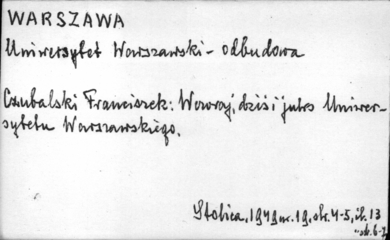 WARSZAWA
Uniwersytet Warszawski - odbudowa
Czubalski Franciszek: Wczoraj, dziś i jutro Uniwer-
sytetu Warszawskiego.
Stolica, 1949 nr. 19, str. 4-5, il. 13